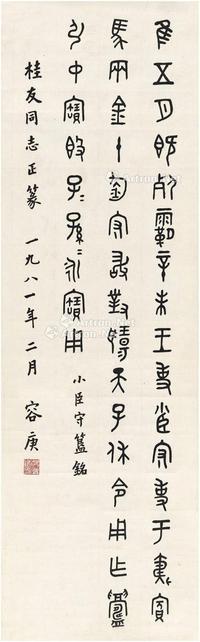 隹五月既死霸辛未王事小臣守事于夷賓
馬兩金十鈞守敢對揚天子休令用乍鑄
引中寶𣪘子〻孫〻永寶用 小臣守簋銘
桂友同志正篆 一九八一年二月 容庚